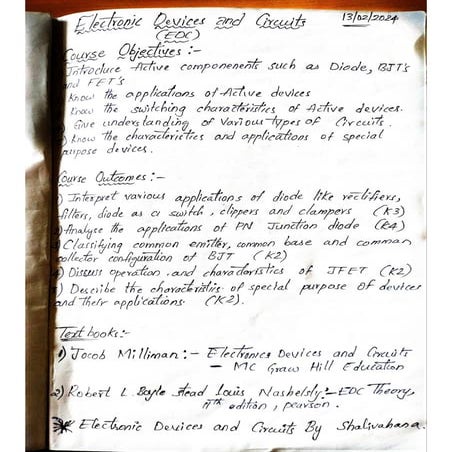 Electronic Devices and Circuits
13/02/2024
(EDC)
Course Objectives :-
Introduce Active componenents such as Diode, BJT's
and FET's
Know the applications of Active devices
Know the switching characteristics of Active devices.
Give understanding of Various types of Circuits.
Know the characterictics and applications of special
purpose devices.
Course Outcomes :-
1) Interpret various applications of diode like rectifiers,
filters, diode as a switch, clippers and clampers (K3)
2) Analyse the applications of PN Junction diode (K4)
3) Classifying common emitter, common base and comman
collector configuration of BJT (K2)
4) Discuss operation and characteristics of JFET (K2)
5) Describe the characteristics of special purpose of devices
and their applications (K2).
Text books :-
1) Jocob Milliman :- Electronics Devices and Circuits
- MC Graw Hill Education
2) Robert L. Boyle stead louis :- EDC Theory,
edition, pearson.
* Electronic Devices and Circuits By Shalivahana.